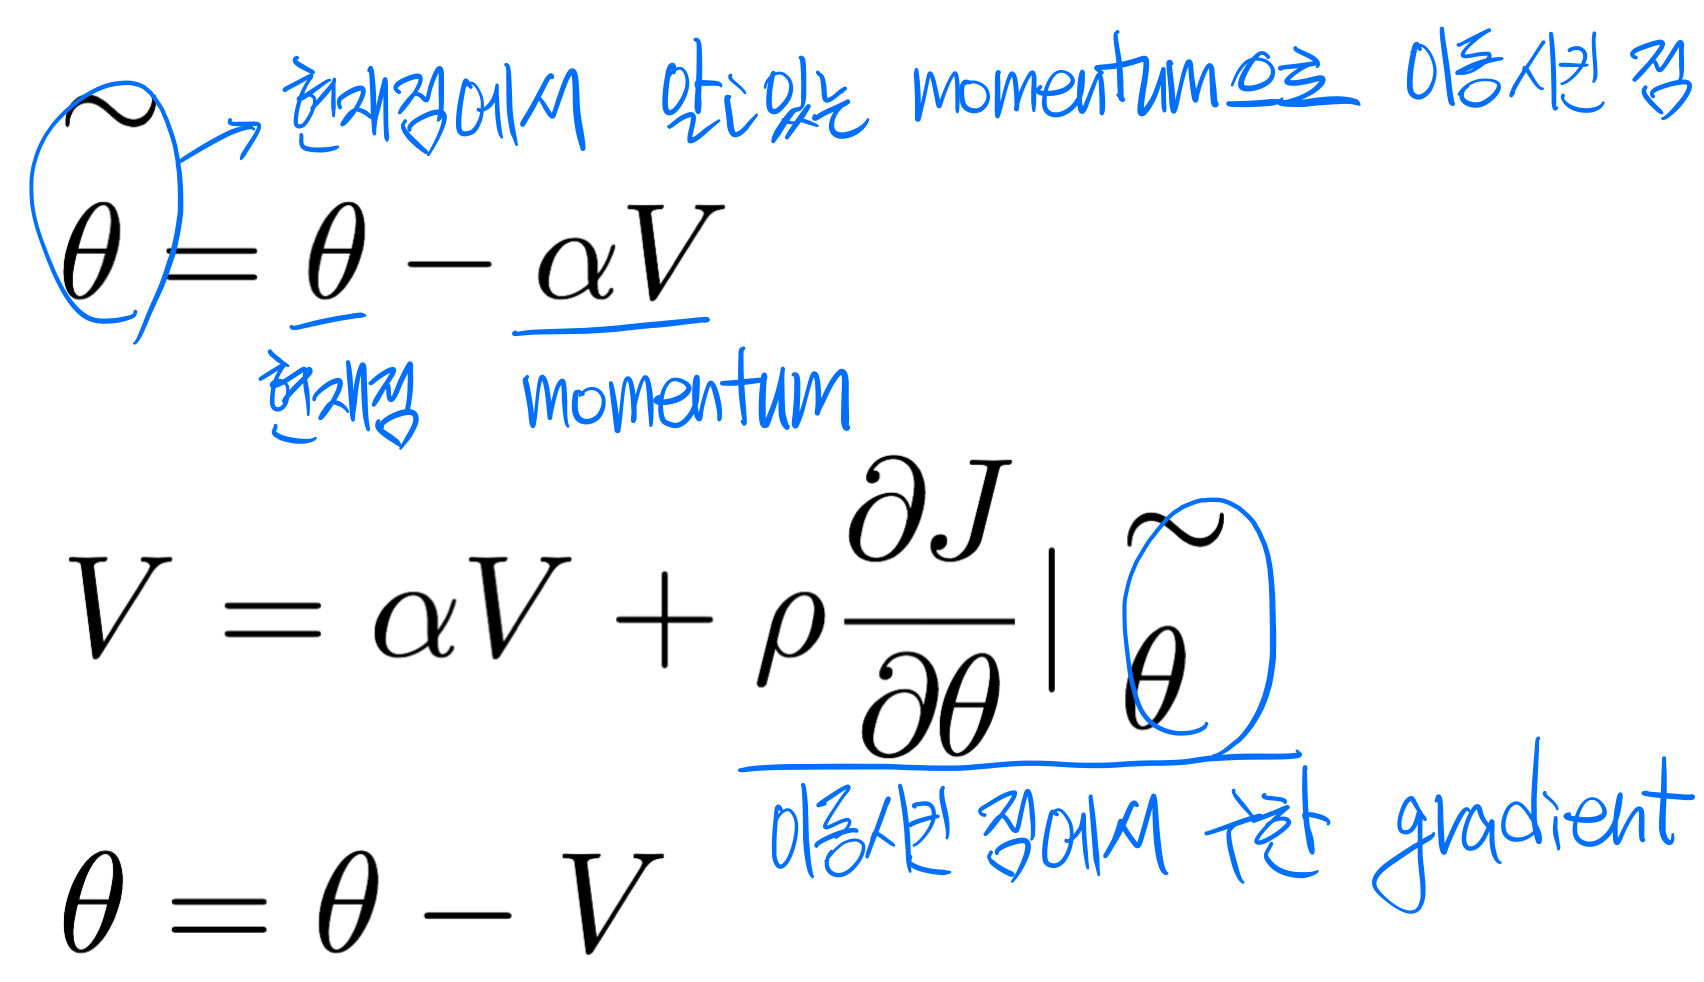 현재점에서 알고있는 momentum으로 이동시킨 점
θ̃ = θ − αV
현재점 momentum
V = αV + ρ ∂J/∂θ | θ̃
이동시킨 점에서 구한 gradient
θ = θ − V